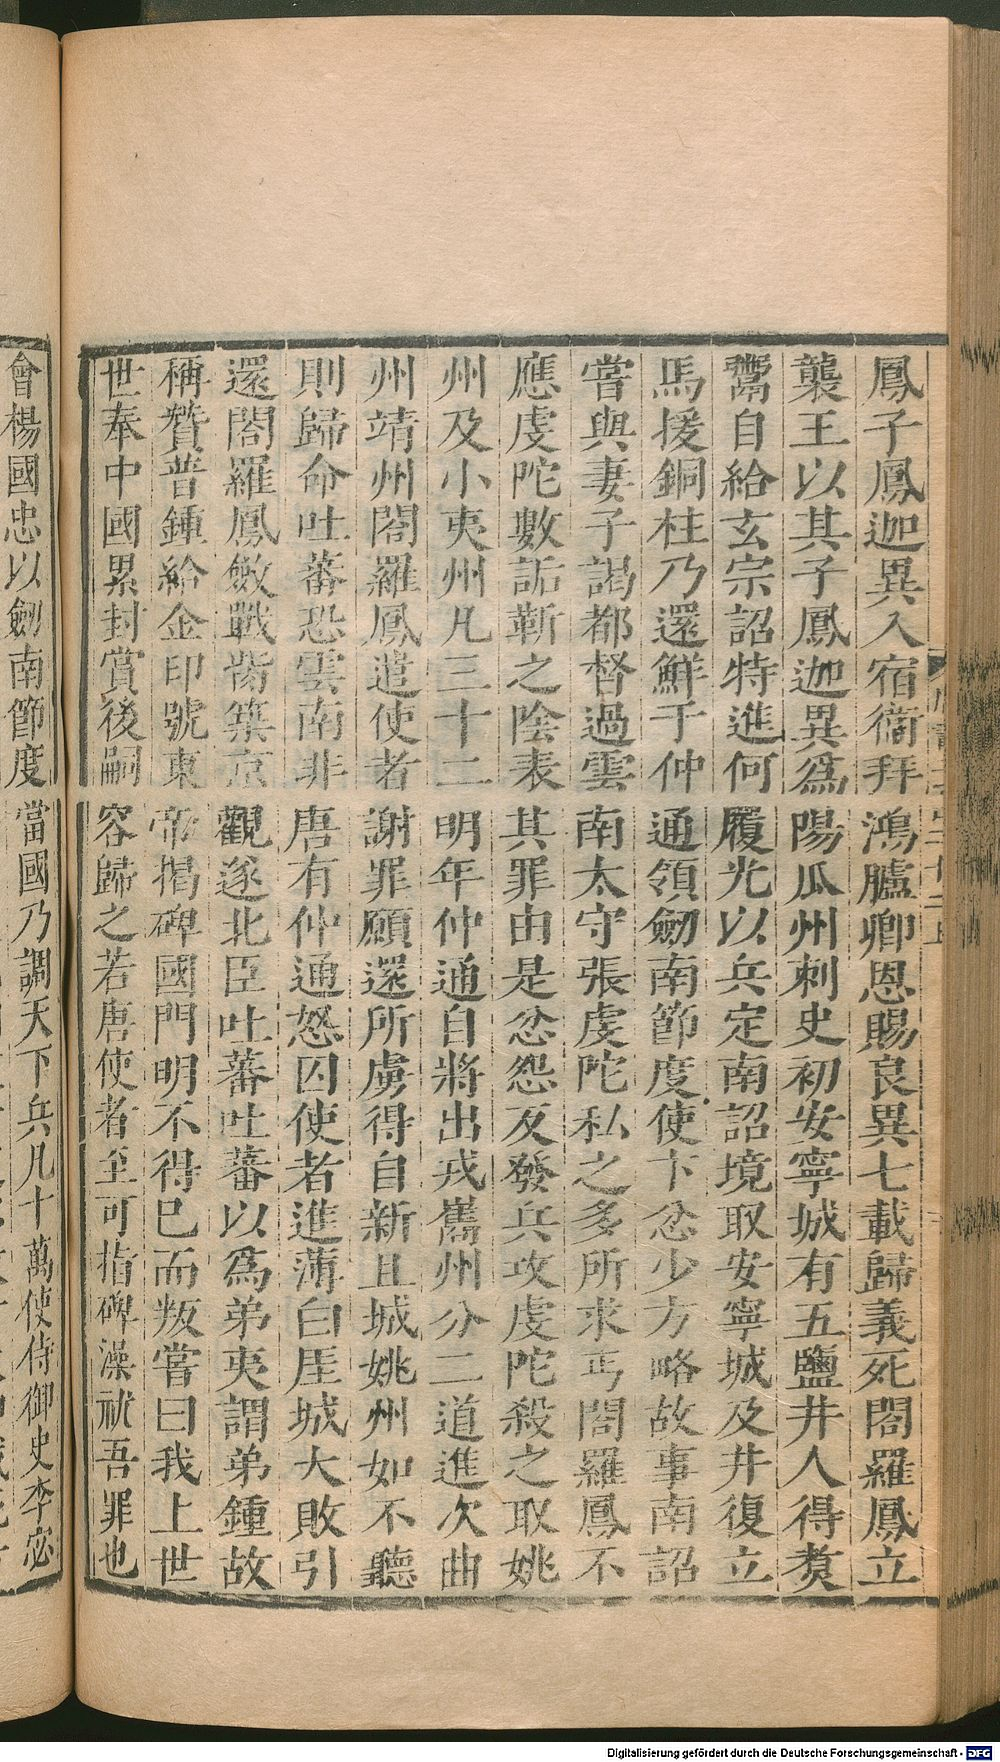 鳳子鳳迦異入宿衞拜鴻臚卿恩賜良異七載歸義死閤羅鳳立
襲王以其子鳳迦異爲陽瓜州刺史初安寧城有五鹽井人得煑
鬻自給玄宗詔特進何履光以兵定南詔境取安寧城及井復立
馬援銅柱乃還鮮于仲通領劒南節度使卞忿少方略故事南詔
嘗與妻子謁都督過雲南太守張虔陀私之多所求丐閤羅鳳不
應虔陀數詬靳之陰表其罪由是忿怨反發兵攻虔陀殺之取姚
州及小夷州凡三十二明年仲通自將出戎巂州分二道進次曲
州靖州閤羅鳳遣使者謝罪願還所虜得自新且城姚州如不聽
則歸命吐蕃恐雲南非唐有仲通怒囚使者進薄白厓城大敗引
還閤羅鳳斂戰胔築京觀遂北臣吐蕃吐蕃以爲弟夷謂弟鍾故
稱贊普鍾給金印號東帝揭碑國門明不得已而叛嘗曰我上世
世奉中國累封賞後嗣容歸之若唐使者至可指碑澡祓吾罪也
會楊國忠以劒南節度當國乃調天下兵凡十萬使侍御史李宓
Digitalisierung gefördert durch die Deutsche Forschungsgemeinschaft - DFG